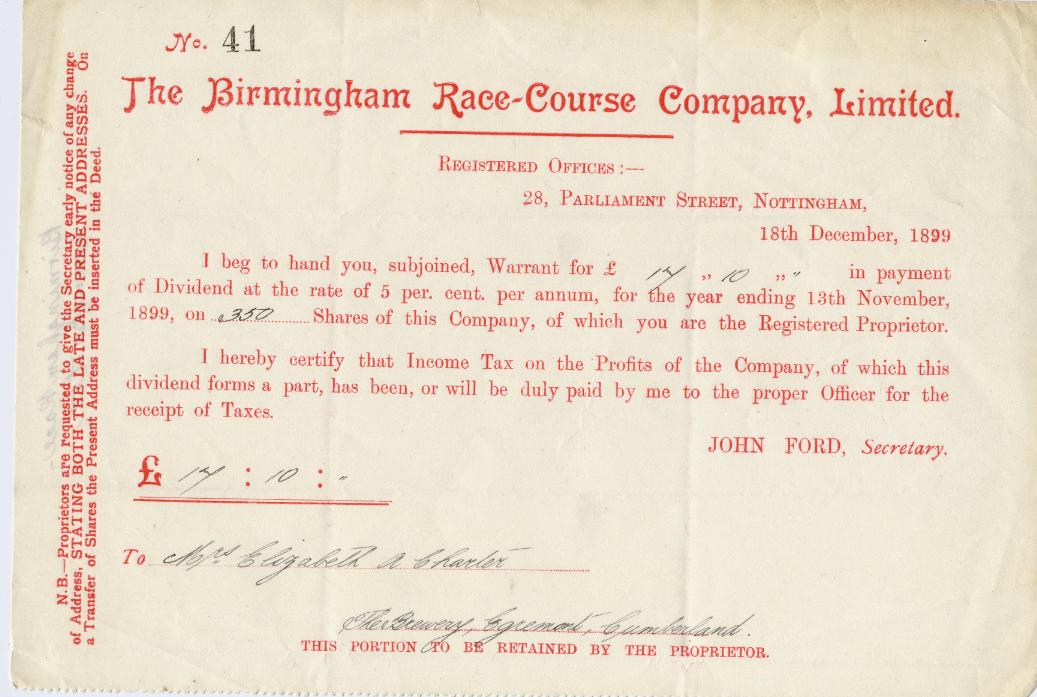 No. 41
The Birmingham Race-Course Company, Limited.
REGISTERED OFFICES:—
28, PARLIAMENT STREET, NOTTINGHAM,
18th December, 1899
I beg to hand you, subjoined, Warrant for £ 17 „ 10 „ „ in payment
of Dividend at the rate of 5 per. cent. per annum, for the year ending 13th November,
1899, on 350 Shares of this Company, of which you are the Registered Proprietor.
I hereby certify that Income Tax on the Profits of the Company, of which this
dividend forms a part, has been, or will be duly paid by me to the proper Officer for the
receipt of Taxes.
JOHN FORD, Secretary.
£ 17 : 10 : „
To Mrs. Elizabeth A Charter
The Brewery, Egremont, Cumberland.
THIS PORTION TO BE RETAINED BY THE PROPRIETOR.
N.B.—Proprietors are requested to give the Secretary early notice of any change
of Address, STATING BOTH THE LATE AND PRESENT ADDRESSES. On
a Transfer of Shares the Present Address must be inserted in the Deed.